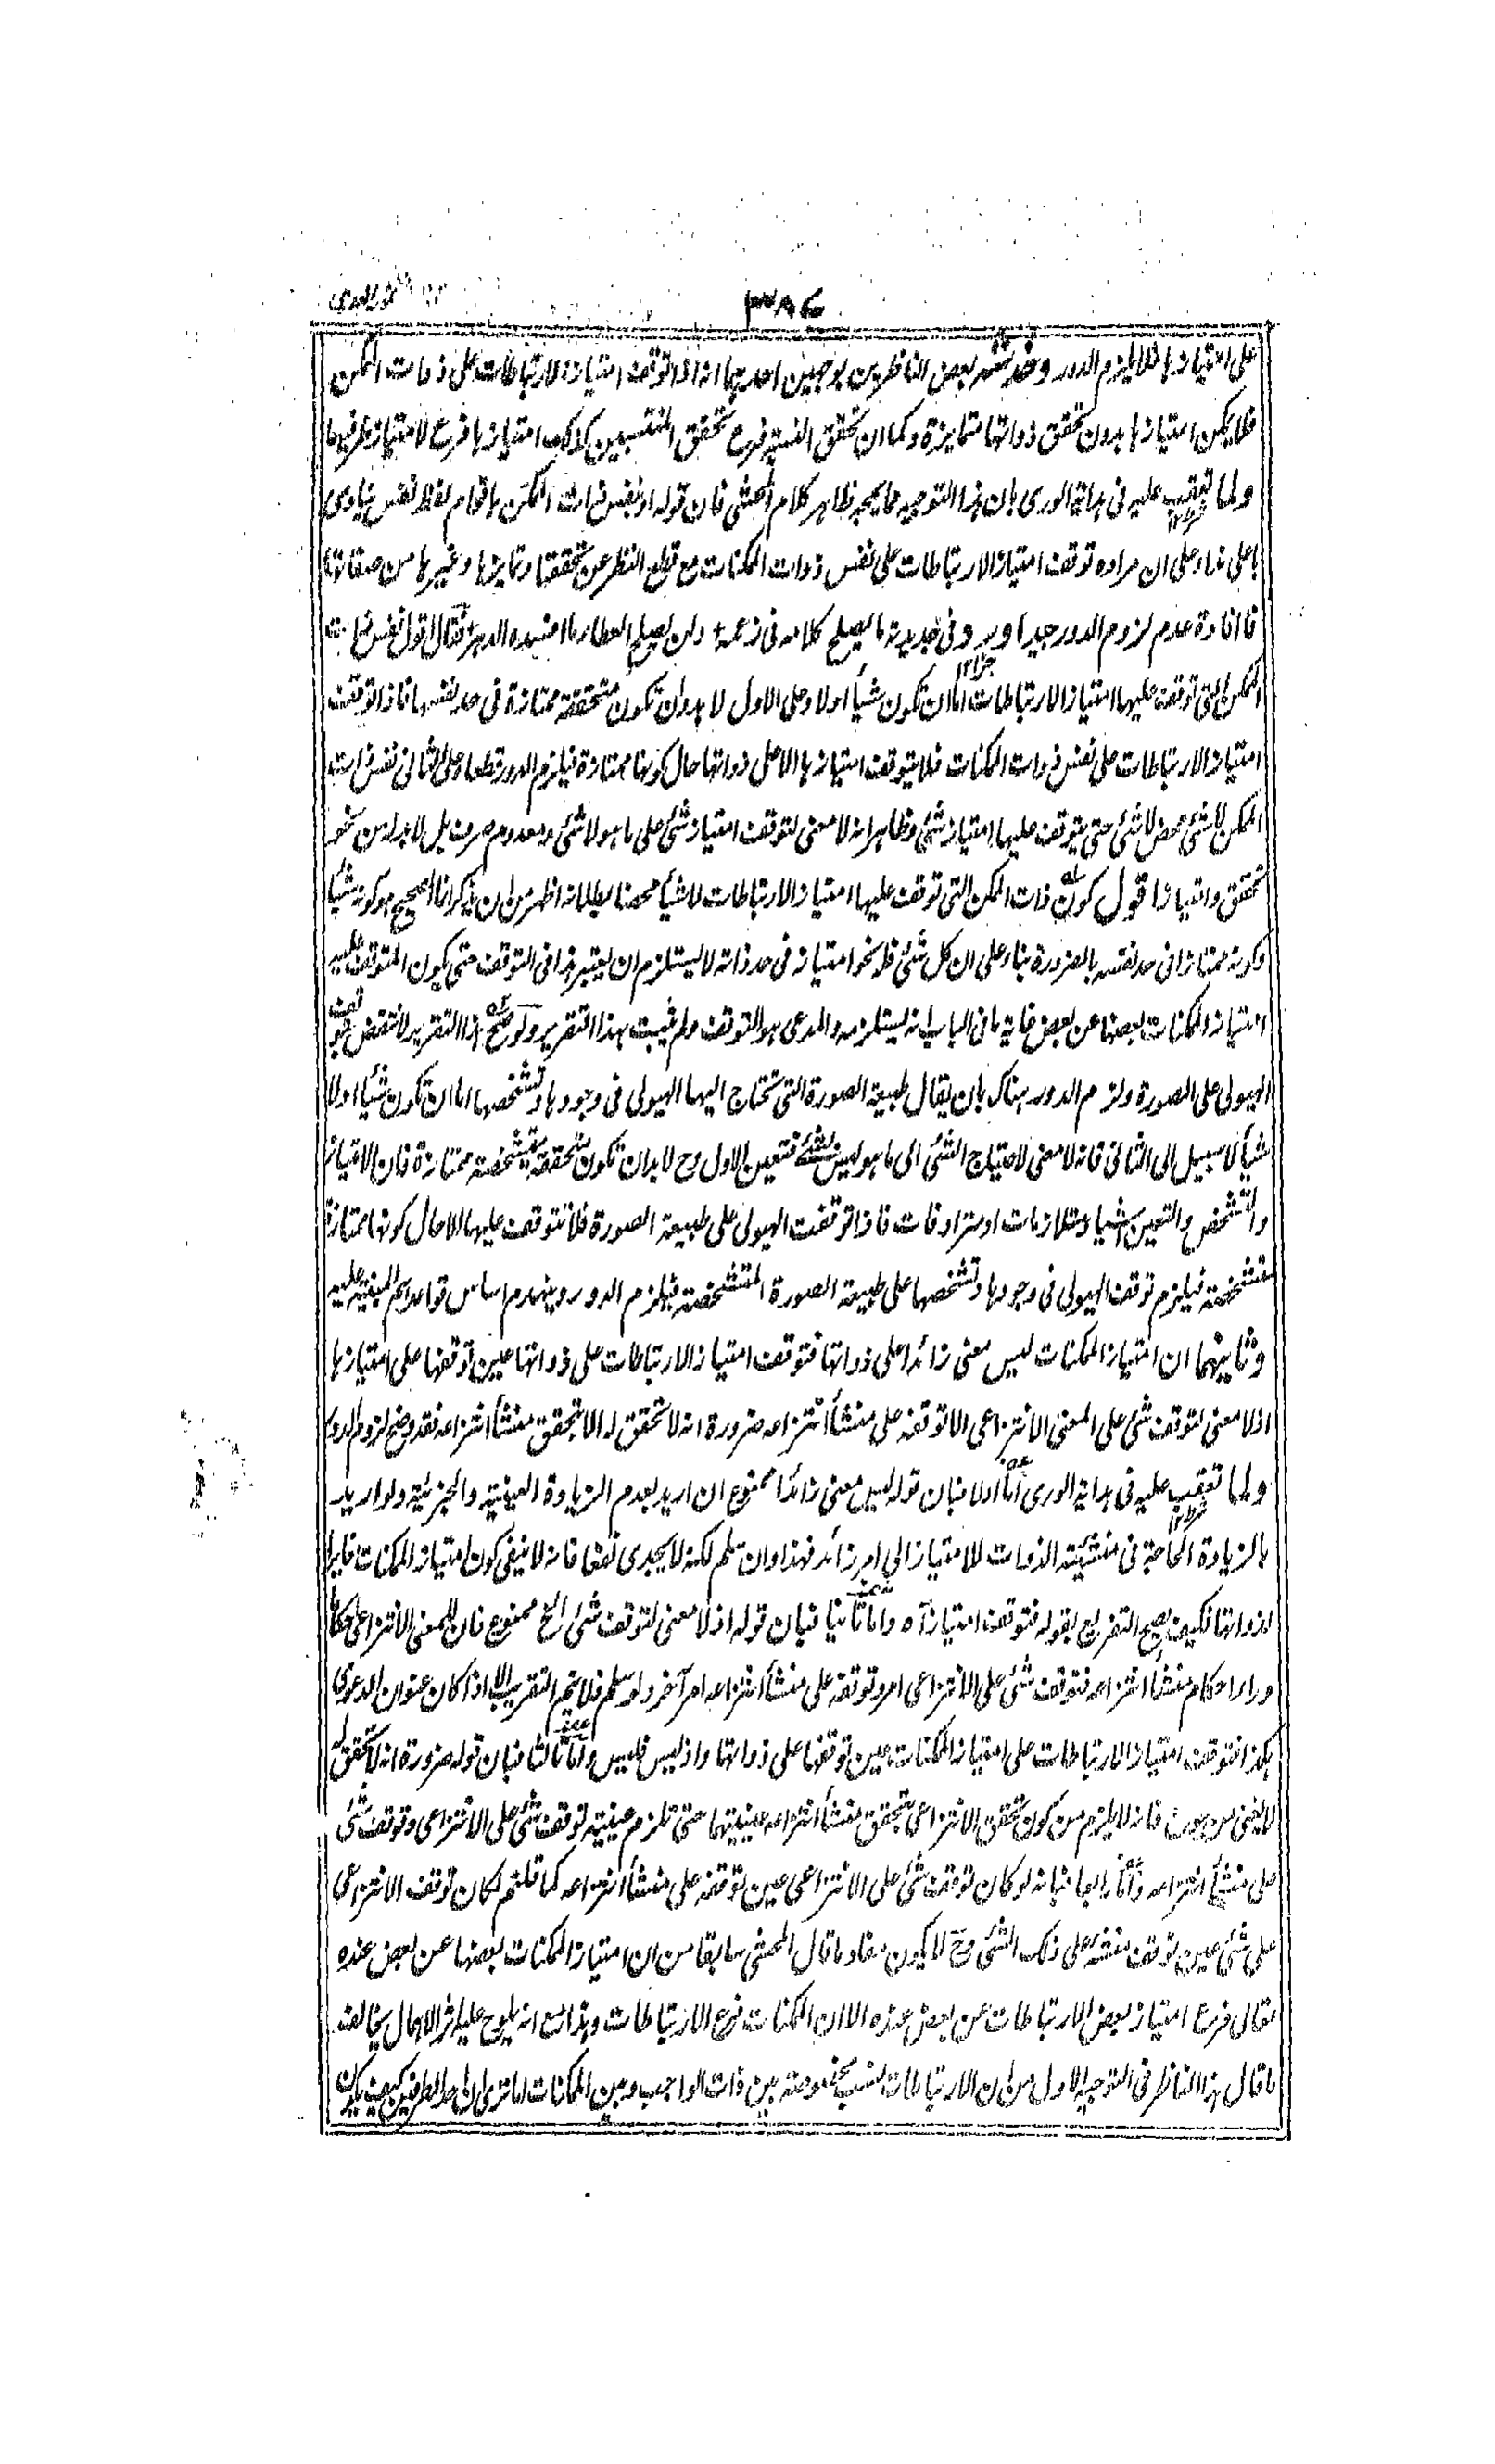 ٣٨٤
على امتيازها فلا يلزم الدور وخدشه بعض الناظرين بوجهين احدهما انه اذا توقف امتياز الارتباطات على ذوات الممكن
فلا يمكن امتيازها بدون تحقق ذواتها متمايزة وكما ان تحقق النسبة فرع تحقق المنتسبين كذلك امتيازها فرع لامتياز طرفيها
ولما تعقب عليه فى هداية الورى بان هذا التوجيه مما يمجه ظاهر كلام المحشى فان قوله او بنفس ذات الممكن باقحام لفظ نفس ينادى
باعلى نداء على ان مراده توقف امتياز الارتباطات على نفس ذوات الممكنات مع قطع النظر عن تحققها وتمايزها وغيرها من صفاتها
فافادة عدم لزوم الدور جيد اورد فى جديدته ما يصلح كلامه فى زعمه + ولن يصلح العطار ما افسده الدهر + فقال اقول نفس ذات
الممكن التى توقف عليها امتياز الارتباطات اما ان تكون شيأ اولا وعلى الاول لا بد وان تكون متحققة ممتازة فى حد نفسها فاذا توقف
امتياز الارتباطات على نفس ذوات الممكنات فلا يتوقف امتيازها الا على ذواتها حال كونها ممتازة فيلزم الدور قطعا وعلى الثانى نفس ذات
الممكن لا شئ محض لا شئ حتى يتوقف عليها امتياز شئ وظاهر انه لا معنى لتوقف امتياز شئ على ما هو لا شئ ومعدوم صرف بل لا بد له من نحو
تحقق وامتياز اقول كون ذات الممكن التى توقف عليها امتياز الارتباطات لا شيأ محضا بطلانه اظهر من ان يذكر انما الصحيح هو كونه شيأ
وكونه ممتازا فى حد نفسه بالضرورة بناء على ان كل شئ فله نحو امتياز فى حد ذاته لا يستلزم ان يعتبر هذا فى التوقف حتى يكون المتوقف عليه
امتياز الممكنات بعضها عن بعض غاية ما فى الباب انه يستلزمه والمدعى هو التوقف ولم يثبت بهذا التقرير ولو صح هذا التقرير لانتقض بتوقف
الهيولى على الصورة ولزم الدور هناك بان يقال طبيعة الصورة التى تحتاج اليها الهيولى فى وجودها وتشخصها اما ان تكون شيأ اولا
شيأ لا سبيل الى الثانى فانه لا معنى لاحتياج الشئ الى ما هو ليس بشئ فتعين الاول وح لا بد ان تكون متحققة متشخصة ممتازة فان الامتياز
والتشخص والتعين اشياء متلازمات او مترادفات فاذا توقفت الهيولى على طبيعة الصورة فلا تتوقف عليها الا حال كونها ممتازة
متشخصة فيلزم توقف الهيولى فى وجودها وتشخصها على طبيعة الصورة المتشخصة فيلزم الدور وينهدم اساس قواعدهم المبنية عليه
وثانيهما ان امتياز الممكنات ليس معنى زائدا على ذواتها فتوقف امتياز الارتباطات على ذواتها عين توقفها على امتيازها
اذ لا معنى لتوقف شئ على المعنى الانتزاعى الا توقفه على منشأ انتزاعه ضرورة انه لا تحقق له الا بتحقق منشأ انتزاعه فقد وضح لزوم الدور
ولما تعقب عليه فى هداية الورى اما اولا فبان قوله ليس معنى زائدا ممنوع ان اريد بعدم الزيادة العينية والجزئية ولو اريد
بالزيادة الحاجة فى منشئية الذوات للامتياز الى امر زائد فهذا وان سلم لكنه لا يجدى نفعا فانه لا ينفى كون امتياز الممكنات مغايرا
لذواتها فكيف يصح التفريع بقوله فتوقف امتياز آه واما ثانيا فبان قوله اذ لا معنى لتوقف شئ الخ ممنوع فان للمعنى الانتزاعى احكاما
وراء احكام منشأ انتزاعه فتوقف شئ على الانتزاعى امر وتوقفه على منشأ انتزاعه امر آخر ولو سلم فلا يتم التقريب الا اذا كان عنوان الدعوى
هكذا فتوقف امتياز الارتباطات على امتياز الممكنات عين توقفها على ذواتها واذ ليس فليس واما ثالثا فبان قوله ضرورة انه لا تحقق له
لا يغنى من جوع فانه لا يلزم من كون تحقق الانتزاعى بتحقق منشأ انتزاعه عينيتهما حتى تلزم عينية توقف شئ على الانتزاعى وتوقف شئ
على منشأ انتزاعه واما رابعا فبانه لو كان توقف شئ على الانتزاعى عين توقفه على منشأ انتزاعه كما قلتم لكان توقف الانتزاعى
على شئ عين توقف منشئه على ذلك الشئ وح لا يكون مفاد ما قال المحشى سابقا من ان امتياز الممكنات بعضها عن بعض عنده
تعالى فرع امتياز بعض الارتباطات عن بعض عنده الا ان الممكنات فرع الارتباطات وهذا مع انه يلوح عليه اثر الاهمال يخالف
ما قال هذا الناظر فى التوجيه الاول من ان الارتباطات نسب مخصوصة بين ذات الواجب وبين الممكنات اما ترى ان احد الطرفين كيف يكون